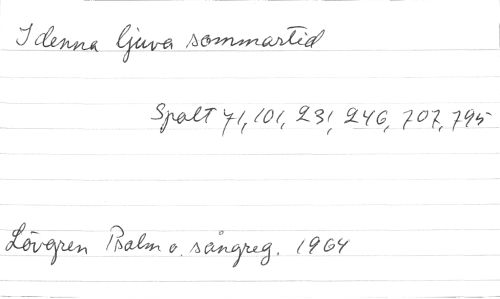 I denna ljuva sommartid
Spalt 71, 101, 231, 246, 707, 795
Lövgren Psalm o. sångreg. 1964